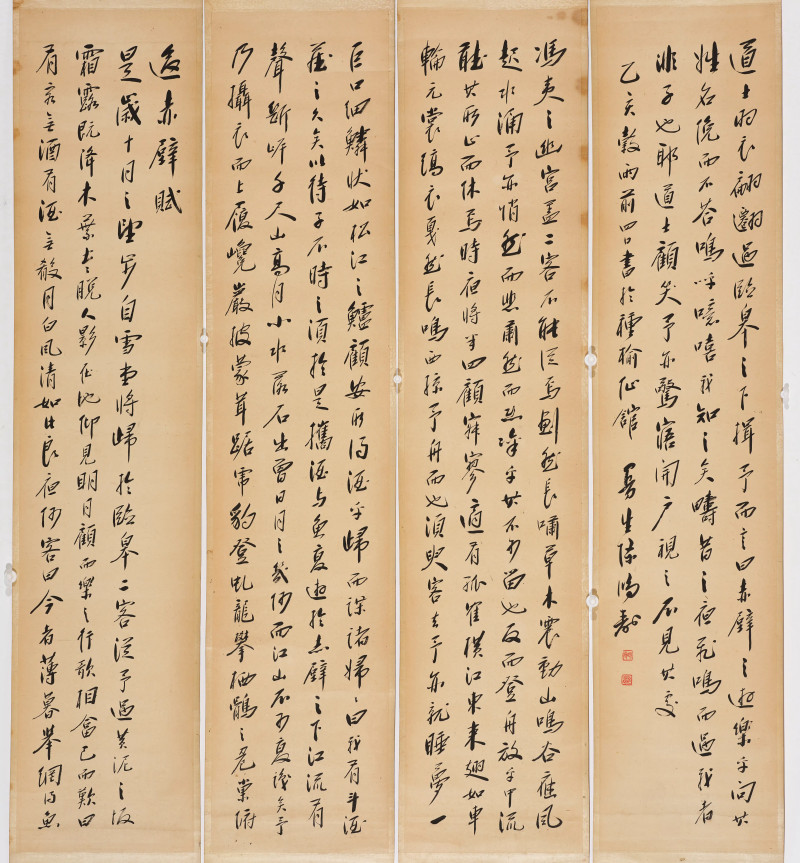 後赤壁賦
是歲十月之望步自雪堂將歸於臨皋二客從予過黃泥之坂
霜露既降木葉盡脫人影在地仰見明月顧而樂之行歌相答已而歎曰
有客無酒有酒無殽月白風清如此良夜何客曰今者薄暮舉網得魚
巨口細鱗狀如松江之鱸顧安所得酒乎歸而謀諸婦〻曰我有斗酒
藏之久矣以待子不時之須於是攜酒與魚復遊於赤壁之下江流有
聲斷岸千尺山高月小水落石出曾日月之幾何而江山不可復識矣予
乃攝衣而上履巉巖披蒙茸踞虎豹登虬龍攀栖鶻之危巢俯
馮夷之幽宮蓋二客不能從焉劃然長嘯草木震動山鳴谷應風
起水涌予亦悄然而悲肅然而恐凜乎其不可留也反而登舟放乎中流
聽其所止而休焉時夜將半四顧寂寥適有孤隺橫江東來翅如車
輪元裳縞衣戛然長鳴西掠予舟而也須臾客去予亦就睡夢一
道士羽衣翩躚過臨皋之下揖予而言曰赤壁之遊樂乎問其
姓名俛而不答嗚呼噫嘻我知之矣疇昔之夜飛鳴而過我者
非子也耶道士顧笑予亦驚寤開戶視之不見其處
乙亥穀雨前四日書於種榆仙館 曼生陳鴻壽